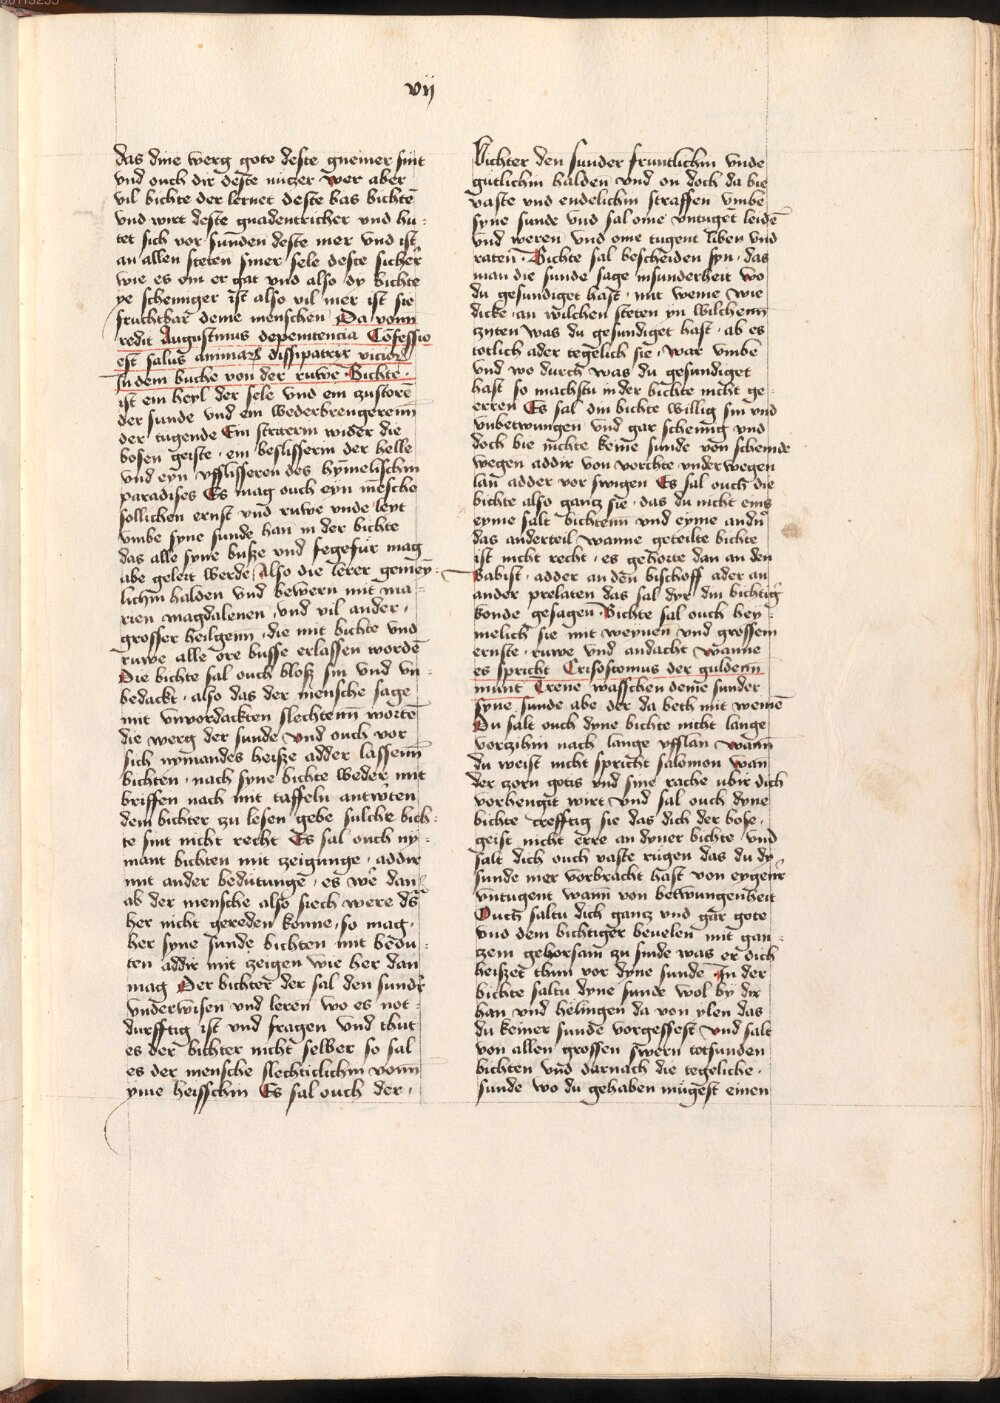 vij
das dine werg gote deste gnemer sint
vnd ouch dir deste nuczer wer aber
vil bichte der lernet deste bas bichtē
vnd wirt deste gnadentricher vnd hu-
tet sich vor sunden deste mer vnd ist
an allen steten siner sele deste sicher
wie es em er gat vnd also dy bichte
ye schemiger ist also vil mer ist sie
fruchtbar deme menschen Da vonn
redit Augustinus depenitencia Cōfessio
est salus animarū dissipatrix vicioꝝ
In dem buche von der ruwe Bichte
ist ein heyl der sele vnd ein zustore
der sunde vnd ein wederbrengerenn
der tugende Ein straerm wider die
bosen geiste ein beslisserm der helle
vnd eyn vfflisseren des hymelischin
paradises Es mag ouch eyn mēsche
sollichen ernst vnd ruwe vnde leyt
vmbe syne sunde han in der bichte
das alle syne busze vnd fegefur mag
abe geleit werde Also die lerer gemeȳ-
lichin halden vnd bewern mit ma-
rien magdalenen vnd vil ander
grosser heilgenn die mit bichte vnd
ruwe alle ore busse erlassen wordē
Die bichte sal ouch blosz sin vnd vn-
bedackt also das der mensche sage
mit vnvordackten slechtenn wortē
die werg der sunde vnd ouch vor
sich nymandes heisze adder lassenn
bichten nach syne bichte weder mit
briffen nach mit taffeln antwrten
dem bichter zu lesen gebe sulche bich-
te sint nicht recht Es sal ouch ny-
mant bichten mit zeigunge addir
mit ander bedutunge es we dan
ab der mensche also siech were ds
her nicht gereden konne so mag
her syne sunde bichten mit bedu-
ten addir mit zeigen wie her dan
mag Der bichter der sal den sundr
vnderwisen vnd leren wo es not-
durfftig ist vnd fragen vnd thut
es der bichter nicht selber so sal
es der mensche slechticlichin vonn
yme heisschin Es sal ouch der
Bichter den sunder fruntlichin vnde
gutlichin halden vnd on doch da bie
vaste vnd endelichin straffen vmbe
syne sunde vnd sal ome vntuget leidē
vnd weren vnd ome tugent liben vnd
raten Bichte sal bescheiden syn das
man die sunde sage insunderheit wo
du gesundiget hast mit weme wie
dicke an wilchen steten yn wilchenn
cziten was du gesundiget hast ab es
totlich ader tegelich sie war vmbe
vnd wo durch was du gesundiget
hast so machstu in der bichte nicht ge-
erren Es sal din bichte willig sin vnd
vnbetwungen vnd gar schemig vnd
doch bie nichte keine sunde von schemde
wegen addir von vorchte vnderwegen
lan adder vor swigen Es sal ouch die
bichte also gantz sie das du nicht eins
eyme salt bichtenn vnd eyme andn
das anderteil wanne geteilte bichte
ist nicht recht es gehorte dan an den
Babist adder an den bischoff ader an
ander prelaten das sal dyr din bichtigr
konde gesagen Bichte sal ouch hey-
melich sie mit weynen vnd grossem
ernste ruwe vnd andacht wanne
es spricht Crisostomus der guldenn
munt Trene wasschen deme sunder
syne sunde abe der da beth mit wenē
Du salt ouch dyne bichte nicht lange
vorzihin nach lange vfflan wann
du weist nicht spricht salomon wan
der zorn gotis vnd sine rache ubir dich
vorhengit wirt Vnd sal ouch dyne
bichte crefftig sie das dich der bose
geist nicht erre an dyner bichte vnd
salt dich ouch vaste rugen das du dy
sunde mer vorbracht hast von eygenr
vntugent wann von betwungenheit
Ouch saltu dich gancz vnd gar gote
vnd dem bichtiger beuelen mit gan-
zem gehorsam zu sinde was er dich
heiszet thun vor dyne sunde In der
bichte saltu dyne sunde wol by dir
han vnd helingen da von ylen das
du keiner sunde vorgessest vnd salt
von allen grossen swern totsunden
bichten vnd darnach die tegeliche
sunde wo du gehaben mugest einen